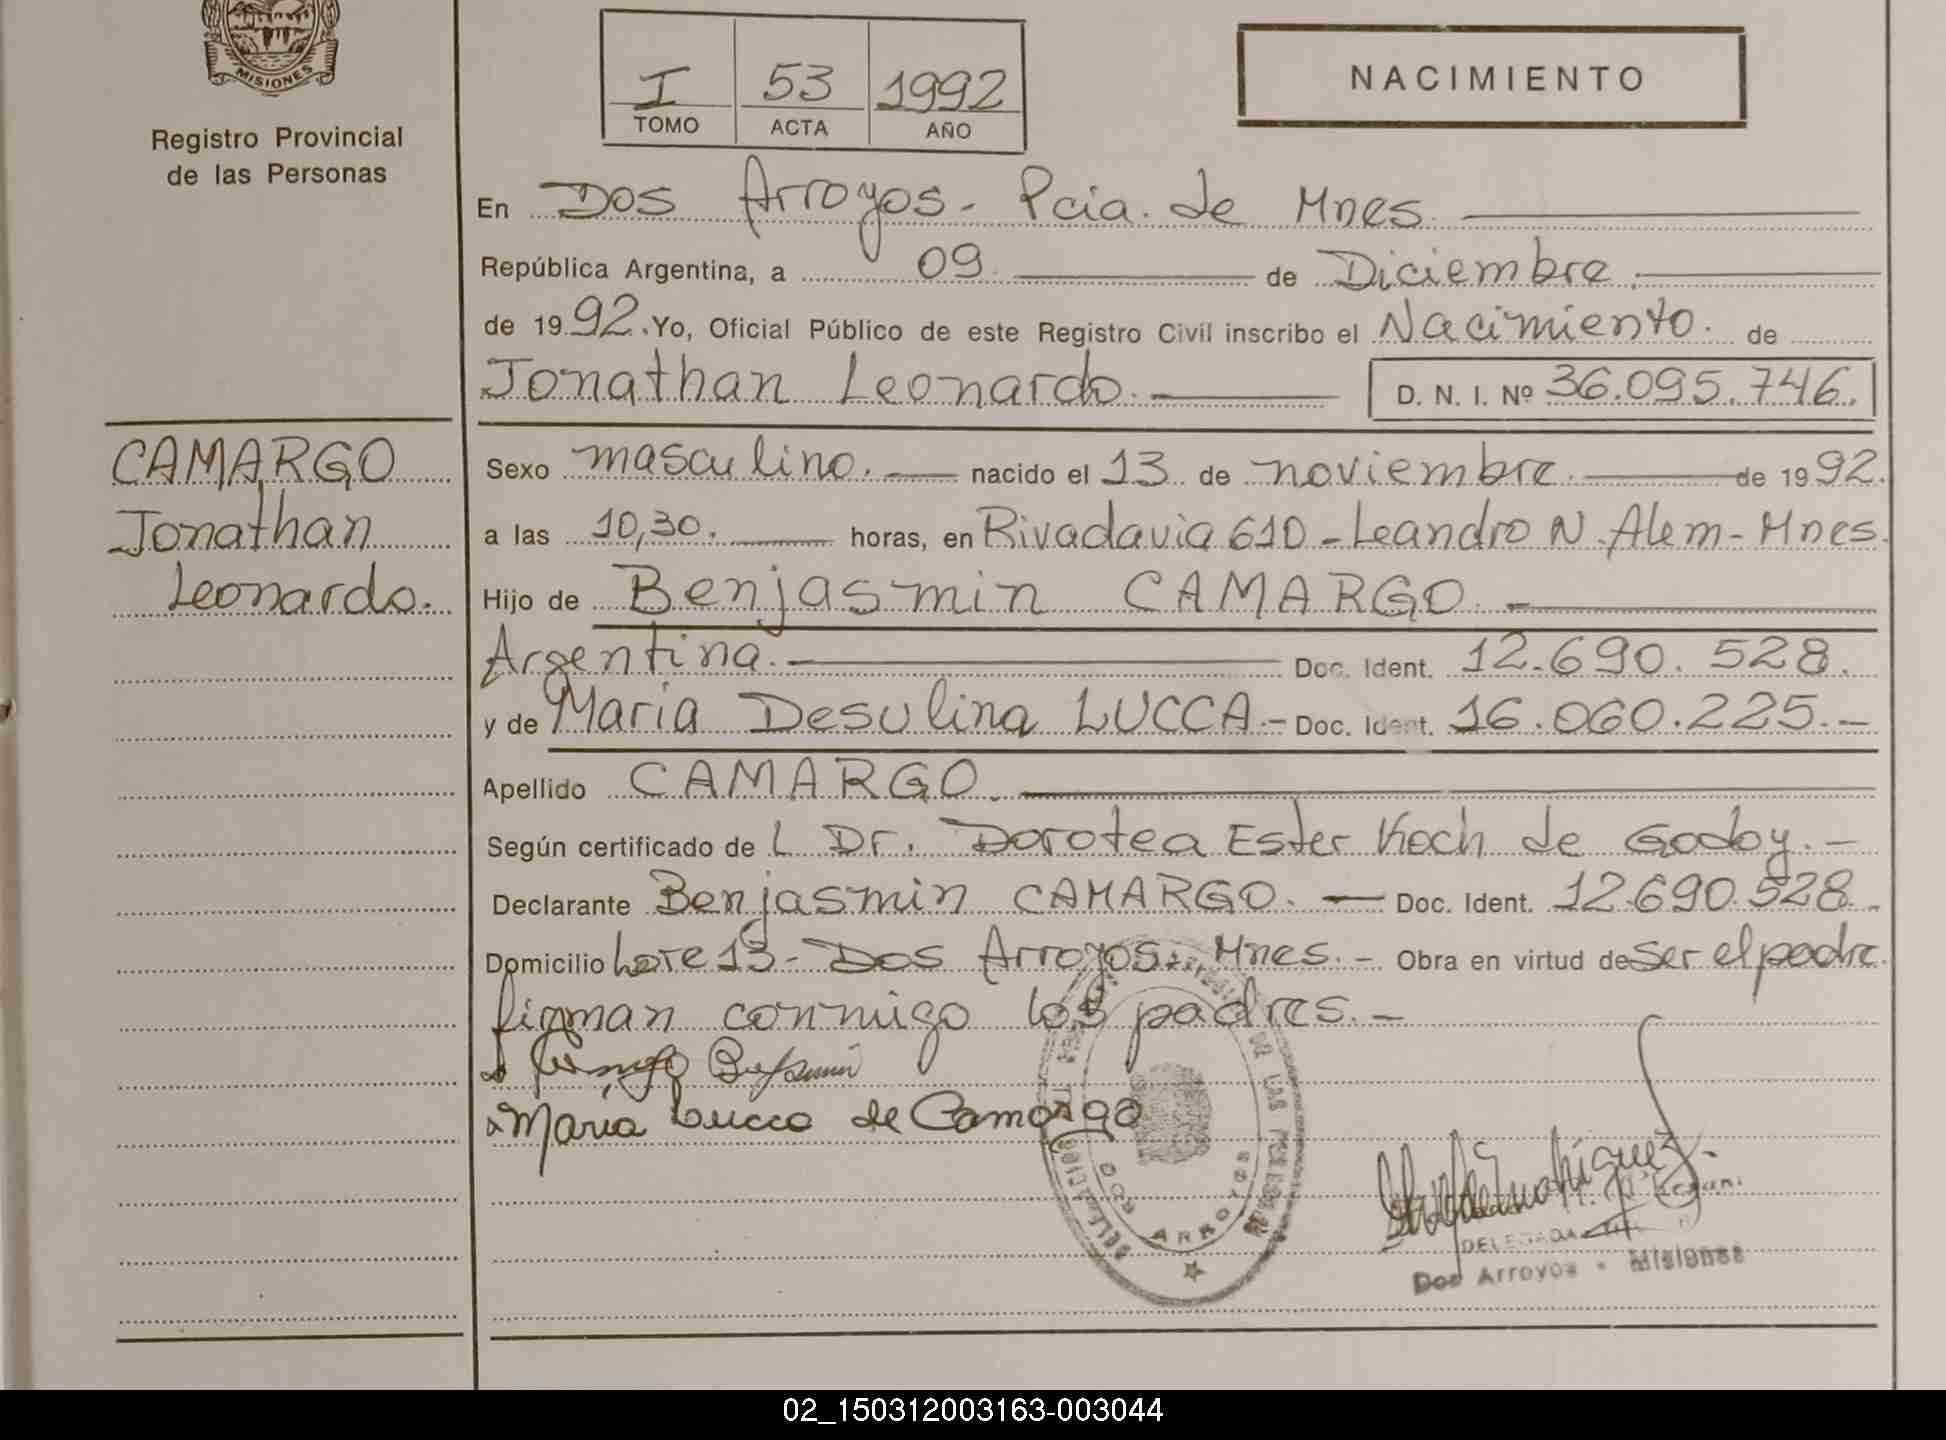 MISIONES
Registro Provincial
de las Personas
I 53 1992
TOMO ACTA AÑO
NACIMIENTO
En Dos Arroyos - Pcia. de Mnes.
República Argentina, a 09 de Diciembre
de 1992. Yo, Oficial Público de este Registro Civil inscribo el Nacimiento. de
Jonathan Leonardo. D. N. I. Nº 36.095.746.
CAMARGO
Jonathan
Leonardo.
Sexo masculino. nacido el 13 de noviembre. de 1992.
a las 10,30. horas, en Rivadavia 610 - Leandro N. Alem - Mnes.
Hijo de Benjasmin CAMARGO.
Argentina. Doc. Ident. 12.690.528.
y de Maria Desulina LUCCA - Doc. Ident. 16.060.225. -
Apellido CAMARGO.
Según certificado de L Dr. Dorotea Ester Koch de Godoy. -
Declarante Benjasmin CAMARGO. - Doc. Ident. 12.690.528.
Domicilio Lote 13 - Dos Arroyos - Mnes. - Obra en virtud de ser el padre
firman conmigo los padres. -
x Maria Lucca de Camargo
DOS ARROYOS
DELEGADA
Dos Arroyos - Misiones
02_150312003163-003044